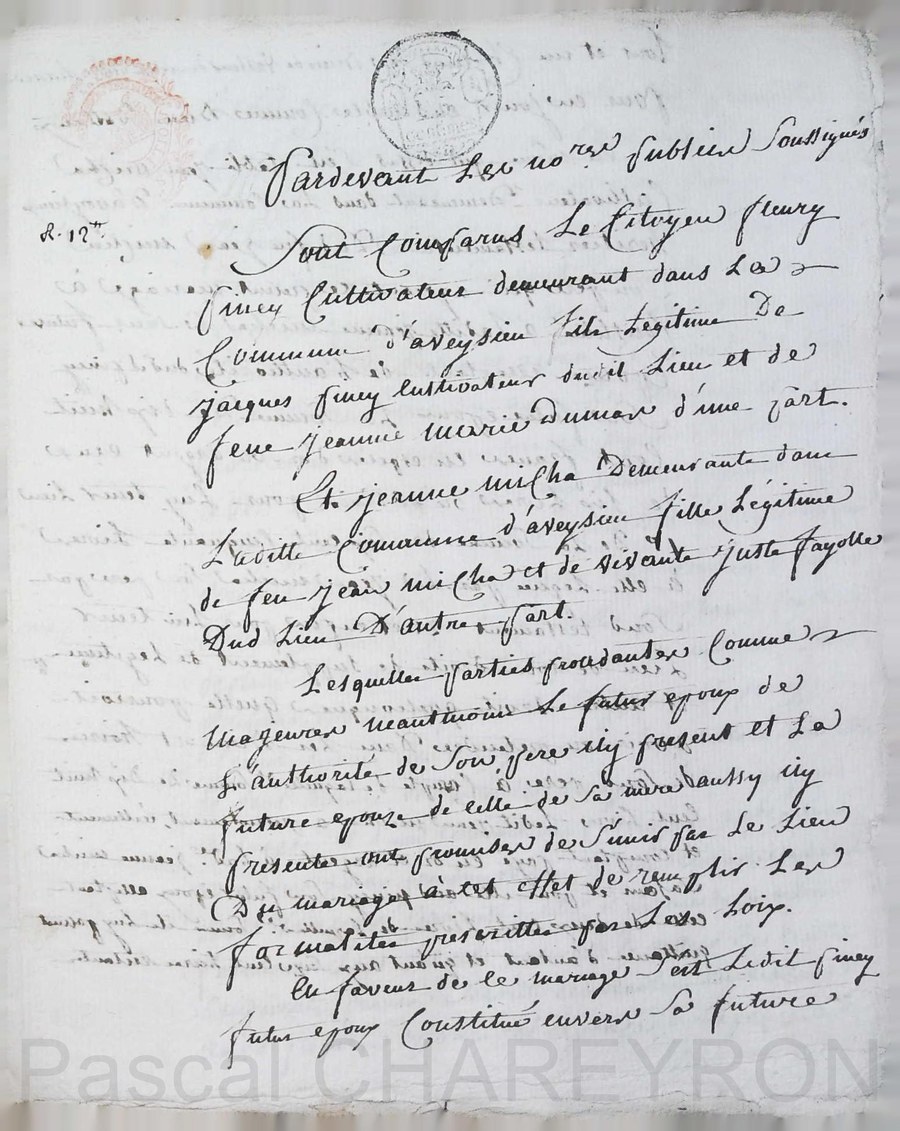 Pardevant Les no.res Publics Soussignés
R. 12tt.
Sont Comparus Le Citoyen fleury
piney Cultivateur demeurant dans La
Commune d'aveysieu fils Legitime De
jacques piney Cultivateur dudit Lieu et de
feue jeanne marie Dumas d'une part.
Et jeanne micha Demeurante dans
Ladille Commune d'aveysieu fille Légitime
de feu jean micha et de vivante juste fayolle
Dud Lieu D'autre part.
Lesquelles parties procedantes Comme
majeures neantmoins Le futur epoux de
L'authorité de Son pere icy present et La
future epouze de celle de Sa mere aussy icy
presente ont promises de S'unir par Le Lien
Du mariage à cet effet de remplir Les
formalités prescrittes par Les Loix.
En faveur de Ce mariage S'est Ledit piney
futur epoux Constitué envers Sa future
Pascal CHAREYRON